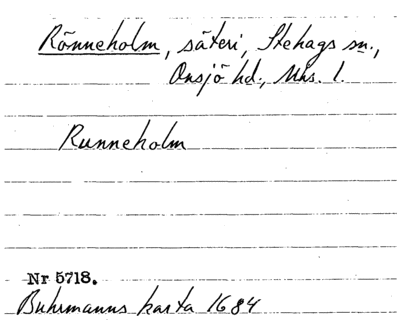 Rönneholm, säteri, Stehags sn.,
Onsjö hd., Mns. l.
Runneholm
Nr 5718.
Buhrmanns karta 1684